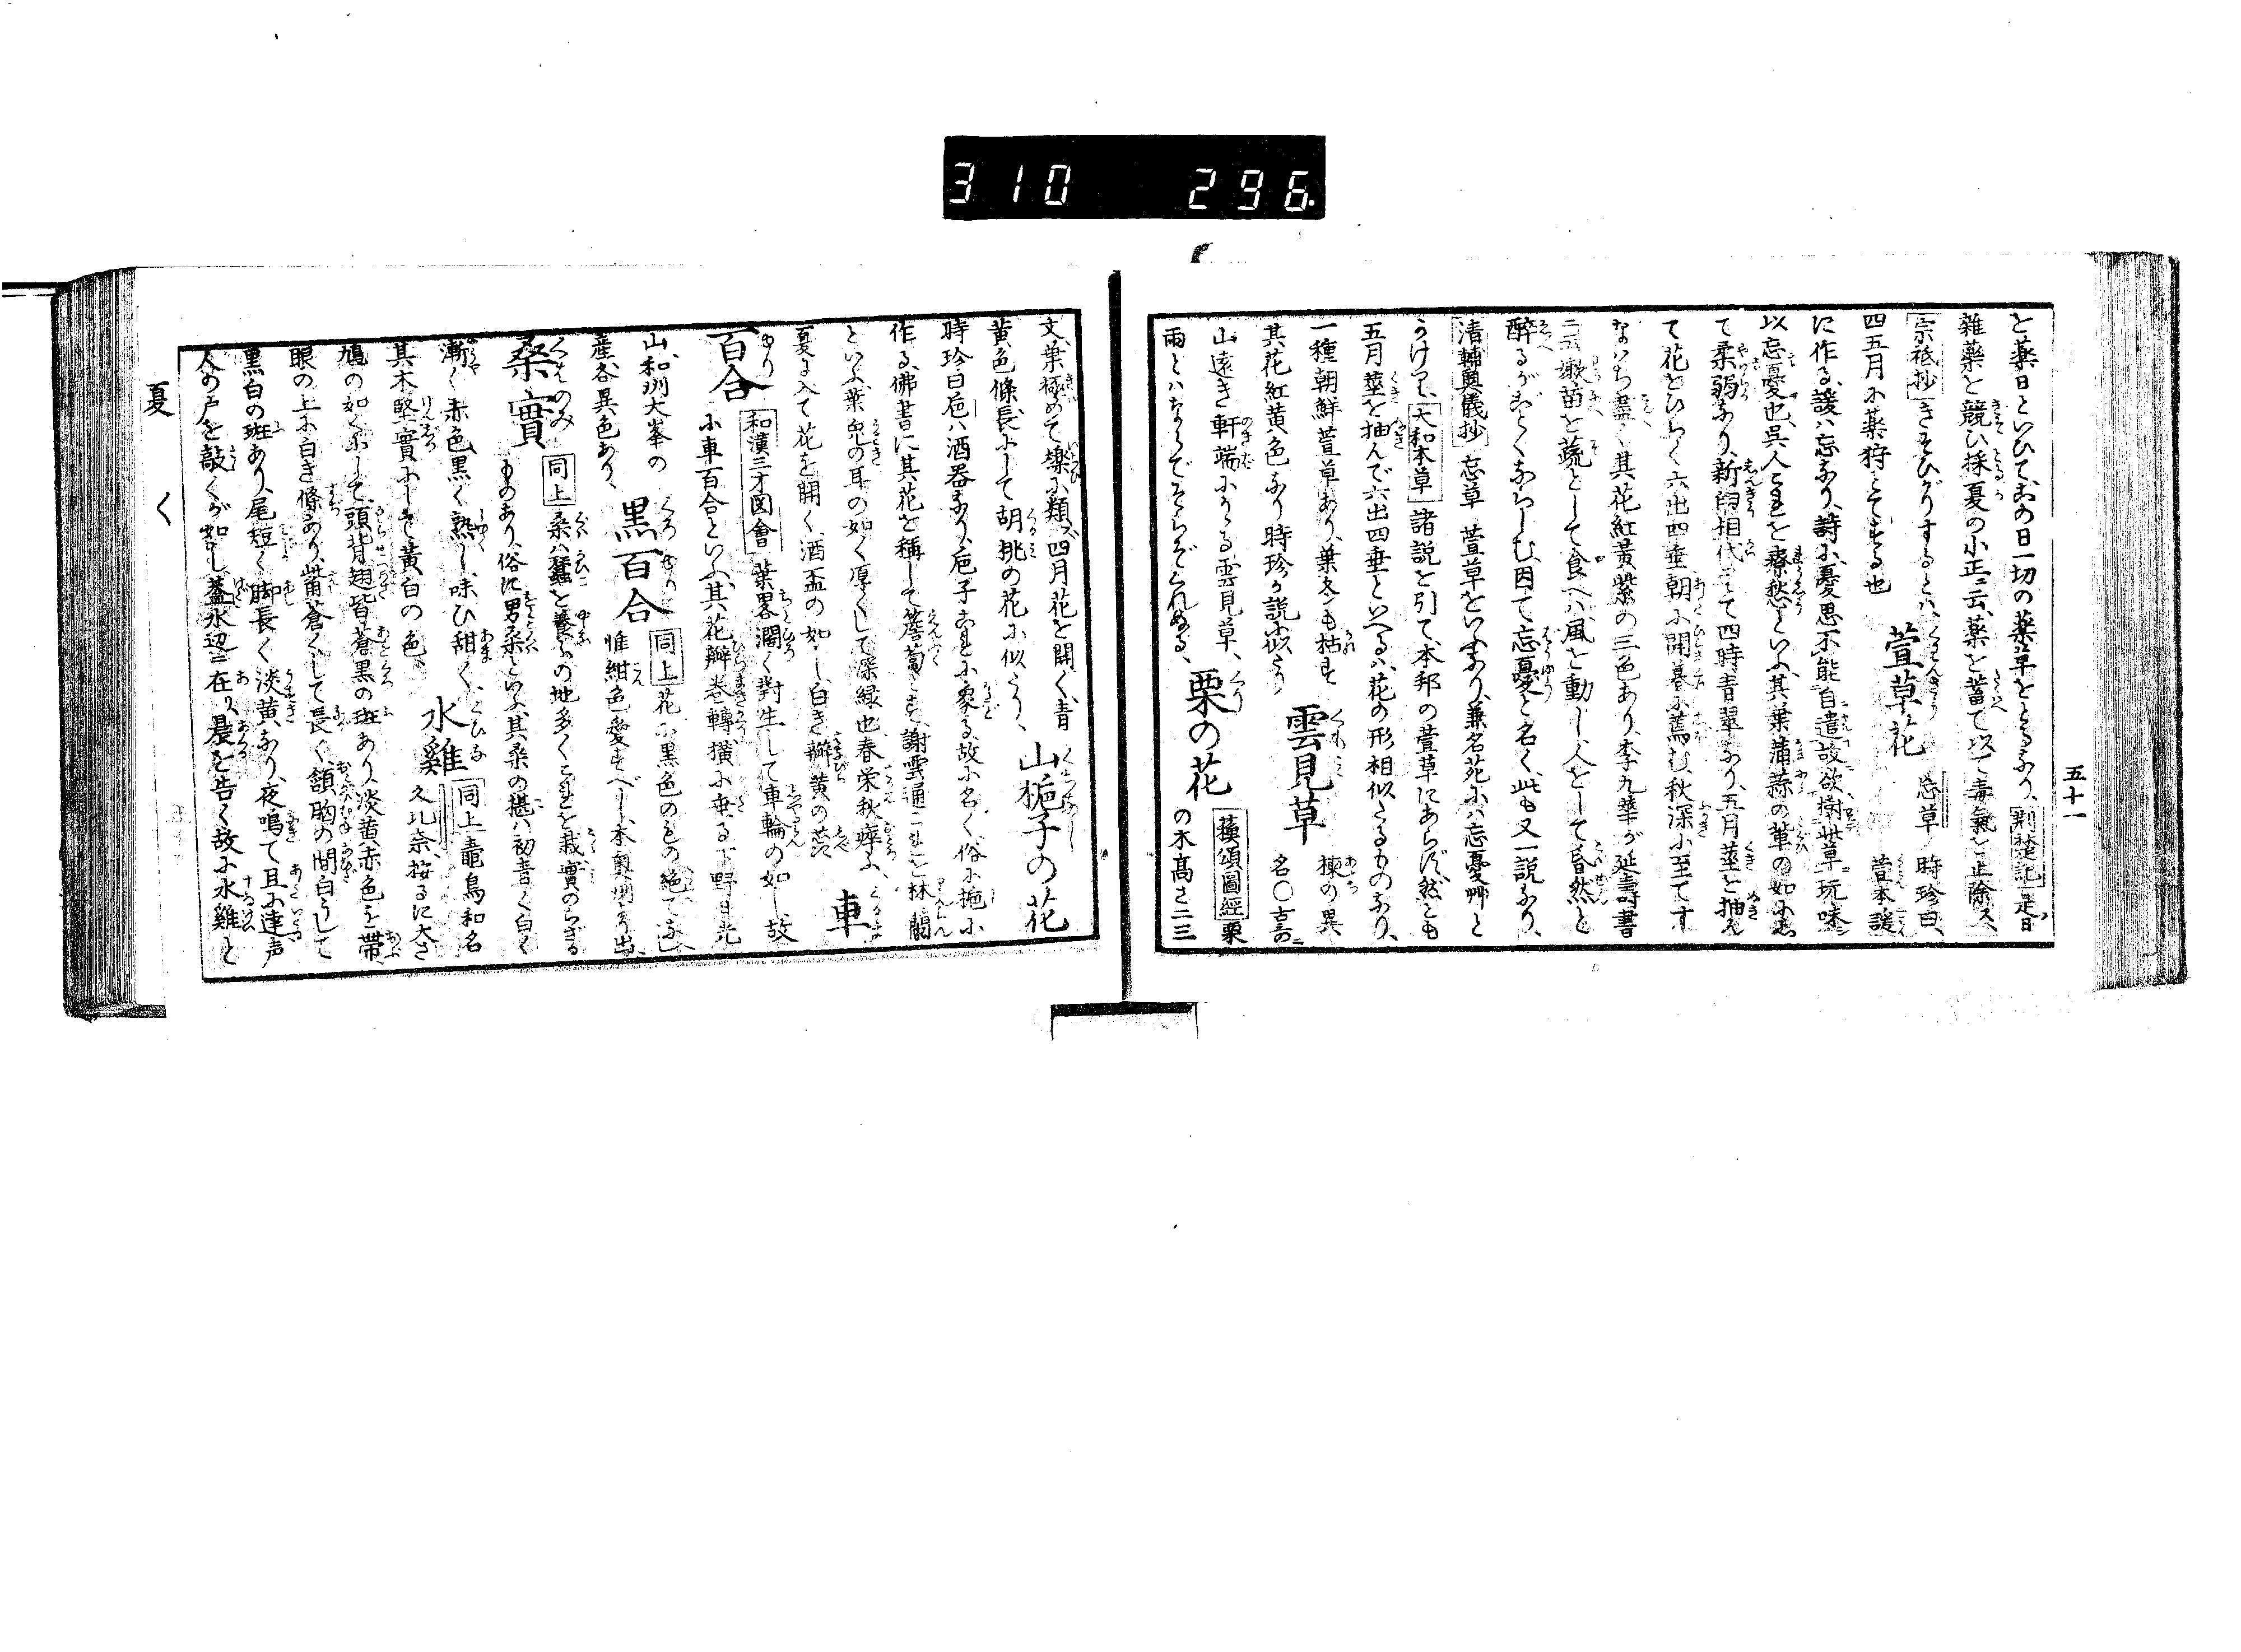 310 296.
五十一
と薬日といひてこの日一切の薬草をとるなり、荆楚記是日
雜薬を競ひ採夏の小正ニ云、薬を蓄て以て毒氣を止除ス、
宗祇抄きそひがりするとハ、
四五月に薬狩とてする也
萱草花 忘草 時珍曰、萱本諼
に作る、諼ハ忘なり、詩に、憂思不能自遣故欲樹此草玩味
以忘憂也、呉人これを療愁といふ、其葉蒲蒜の軰の如にし
て柔弱なり、新旧相代て四時青翠なり、五月莖を抽ん
て花をひらく六出四垂、朝に開暮に蔫む、秋深に至てす
なハち盡く、其花紅黃紫の三色あり、李九華が延壽書
ニ云、嫩苗を蔬として食ヘハ、風を動し、人をして昏然と
醉るがごとくならしむ、因て忘憂と名く、此も又一説なり、
清輔奥儀抄 忘草 萱草をいふなり、兼名苑にハ忘憂艸と
うけり、大和本草 諸説を引て、本邦の萱草にあらず、然とも
五月莖を抽んで六出四垂といへるハ、花の形相似たるものなり、
一種朝鮮萱草あり、葉冬も枯ず
其花紅黄色なり時珍か説に似たり
雲見草 楝の異名〇古哥ニ
山遠き軒端にかゝる雲見草、
雨とハならでそらぞられぬる、
栗の花 蘓頌圖經 栗の木高さ二三
文、葉極めて櫟に類ス、四月花を開く、青
黃色條長にして胡桃の花に似たり、
山梔子の花
時珍曰巵ハ酒器なり、巵子これに象る、故に名く俗に梔に
作る、佛書に其花を稱して簷蔔とす、謝雲通これを林蘭
といふ、葉兔の耳の如く厚くして深緑也、春栄秋瘁ふ、
夏に入て花を開く、酒盃の如し、白き瓣黄の蕊
車百合 和漢三才図會 葉畧濶く對生して車輪の如し、故
に車百合といふ、其花瓣巻轉横に垂る下野日光
山、和州大峯の
産各異色あり、
黒百合 同上 花に黒色のもの絶てなし、
惟紺色愛すべし、本奥州より出、
桑實 同上 桑ハ蠶を養ふの地多くこれを栽、實のらざる
ものあり、俗に男桑といふ、其桑の椹ハ初青く白く
漸く赤色黒く熟し、味ひ甜く、
其木堅實にして黃白の色
水雞 同上 鼃鳥和名
久比奈、按るに大さ
鳩の如くにして、頭背翅皆蒼黒の斑あり、淡黄赤色を帶、
眼の上に白き條あり、觜蒼くして長く、頷胸の間白うして
黒白の斑あり、尾短く脚長く淡黄なり、夜鳴て且に達声
人の戸を敲くが如し、蓋水辺ニ在り、晨を告く故に水雞と
夏 く